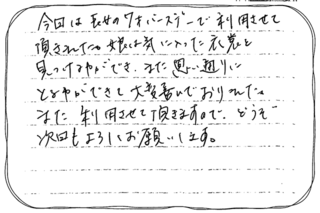 今回は長女の7才バースデーで利用させて
頂きました。娘は気に入った衣裳と
見つける事ができ、また思い通りに
とる事ができて大変喜んでおりました。
また利用させて頂きますので、どうぞ
次回もよろしくお願いします。